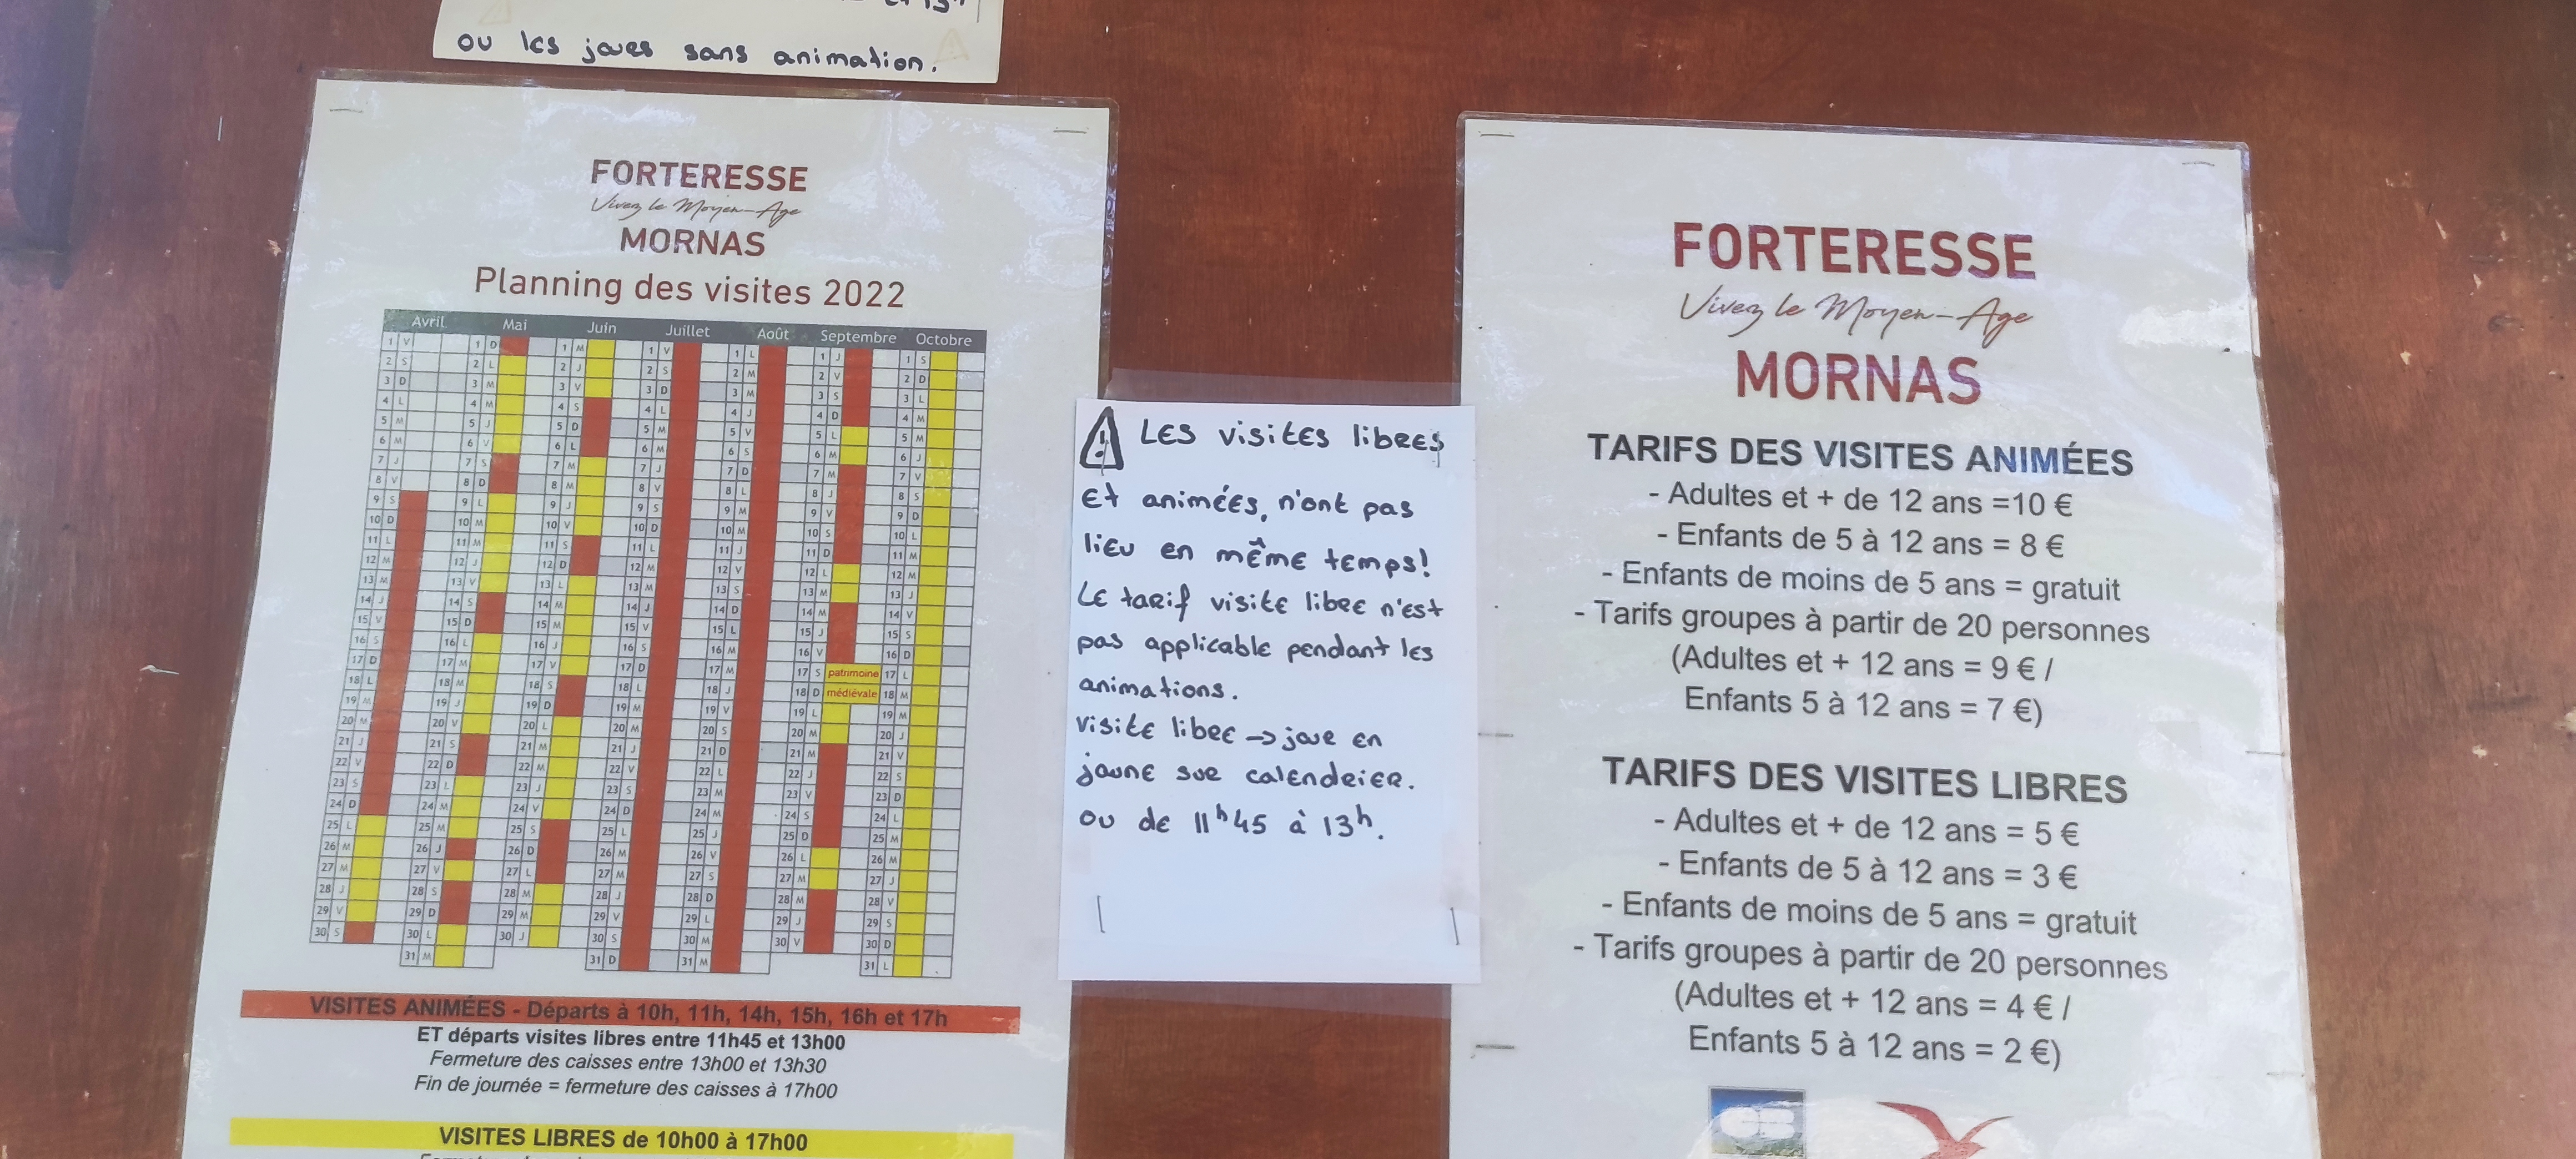 et 13h
ou les jours sans animation.
FORTERESSE
Vivez le Moyen-Age
MORNAS
Planning des visites 2022
Avril Mai Juin Juillet Août Septembre Octobre
1 V 1 D 1 M 1 V 1 L 1 J 1 S
2 S 2 L 2 J 2 S 2 M 2 V 2 D
3 D 3 M 3 V 3 D 3 M 3 S 3 L
4 L 4 M 4 S 4 L 4 J 4 D 4 M
5 M 5 J 5 D 5 M 5 V 5 L 5 M
6 M 6 V 6 L 6 M 6 S 6 M 6 J
7 J 7 S 7 M 7 J 7 D 7 M 7 V
8 V 8 D 8 M 8 V 8 L 8 J 8 S
9 S 9 L 9 J 9 S 9 M 9 V 9 D
10 D 10 M 10 V 10 D 10 M 10 S 10 L
11 L 11 M 11 S 11 L 11 J 11 D 11 M
12 M 12 J 12 D 12 M 12 V 12 L 12 M
13 M 13 V 13 L 13 M 13 S 13 M 13 J
14 J 14 S 14 M 14 J 14 D 14 M 14 V
15 V 15 D 15 M 15 V 15 L 15 J 15 S
16 S 16 L 16 J 16 S 16 M 16 V 16 D
17 D 17 M 17 V 17 D 17 M 17 S patrimoine 17 L
18 L 18 M 18 S 18 L 18 J 18 D médiévale 18 M
19 M 19 J 19 D 19 M 19 V 19 L 19 M
20 M 20 V 20 L 20 M 20 S 20 M 20 J
21 J 21 S 21 M 21 J 21 D 21 M 21 V
22 V 22 D 22 M 22 V 22 L 22 J 22 S
23 S 23 L 23 J 23 S 23 M 23 V 23 D
24 D 24 M 24 V 24 D 24 M 24 S 24 L
25 L 25 M 25 S 25 L 25 J 25 D 25 M
26 M 26 J 26 D 26 M 26 V 26 L 26 M
27 M 27 V 27 L 27 M 27 S 27 M 27 J
28 J 28 S 28 M 28 J 28 D 28 M 28 V
29 V 29 D 29 M 29 V 29 L 29 J 29 S
30 S 30 L 30 J 30 S 30 M 30 V 30 D
31 M 31 D 31 M 31 L
VISITES ANIMÉES - Départs à 10h, 11h, 14h, 15h, 16h et 17h
ET départs visites libres entre 11h45 et 13h00
Fermeture des caisses entre 13h00 et 13h30
Fin de journée = fermeture des caisses à 17h00
VISITES LIBRES de 10h00 à 17h00
LES visites libres
et animées, n'ont pas
lieu en même temps!
Le tarif visite libre n'est
pas applicable pendant les
animations.
visite libre → jour en
jaune sur calendrier.
ou de 11h45 à 13h.
FORTERESSE
Vivez le Moyen-Age
MORNAS
TARIFS DES VISITES ANIMÉES
- Adultes et + de 12 ans =10 €
- Enfants de 5 à 12 ans = 8 €
- Enfants de moins de 5 ans = gratuit
- Tarifs groupes à partir de 20 personnes
(Adultes et + 12 ans = 9 € /
Enfants 5 à 12 ans = 7 €)
TARIFS DES VISITES LIBRES
- Adultes et + de 12 ans = 5 €
- Enfants de 5 à 12 ans = 3 €
- Enfants de moins de 5 ans = gratuit
- Tarifs groupes à partir de 20 personnes
(Adultes et + 12 ans = 4 € /
Enfants 5 à 12 ans = 2 €)
CB